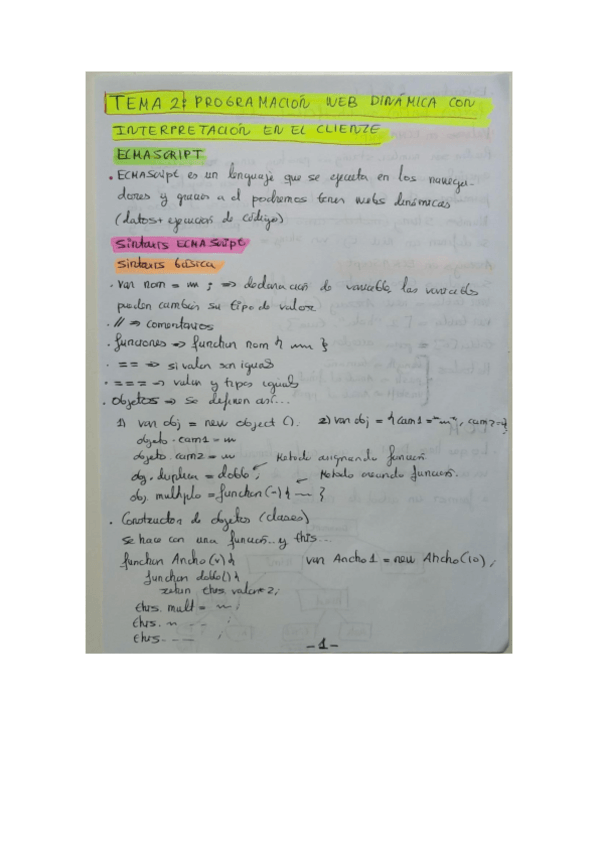 TEMA 2: PROGRAMACIÓN WEB DINÁMICA CON
INTERPRETACIÓN EN EL CLIENTE
ECMASCRIPT
• ECMAScript es un lenguaje que se ejecuta en los navega-
dores y gracias a el podremos tener webs dinámicas
(datos + ejecución de código)
Sintaxis ECMAScript
Sintaxis básica
• Var nom = ; => declaración de variable, las variables
pueden cambiar su tipo de valor
• // => comentarios
• funciones => function nom { }
• == => si valen son iguales
• === => valen y tipos iguales
• Objetos => Se definen así...
1) var obj = new object (). 2) var obj = {cam1 = " ", cam2 = }
objeto.cam1 =
objeto.cam2 = Metodo asignando función
obj.duplica = doblo; Metodo creando función.
obj.multiplo = function(~){ }
• Constructor de objetos (clases)
Se hace con una función.. y this...
function Ancho(v){ var Ancho1 = new Ancho(10);
function doblo(){
return this.valor*2;
this.mult = ;
this. ;
this. ;
-1-